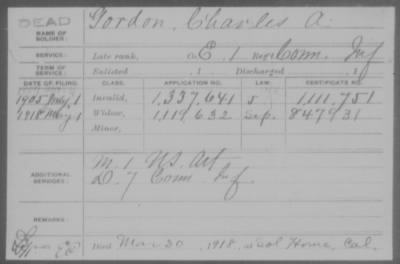 DEAD
NAME OF SOLDIER: Gordon, Charles A.
SERVICE: Late rank, Co. E, 1 Reg't Conn. Inf
TERM OF SERVICE: Enlisted , 1 Discharged , 1
DATE OF FILING. CLASS. APPLICATION NO. LAW. CERTIFICATE NO.
1905 May 1 Invalid, 1,337,641 1,111,751
1918 May 1 Widow, 1,119,632 Sep. 847931
Minor,
ADDITIONAL SERVICES: M. 1 US. Art
D. 7 Conn Inf.
REMARKS:
Died Mar 30, 1918, at Sol Home, Cal.